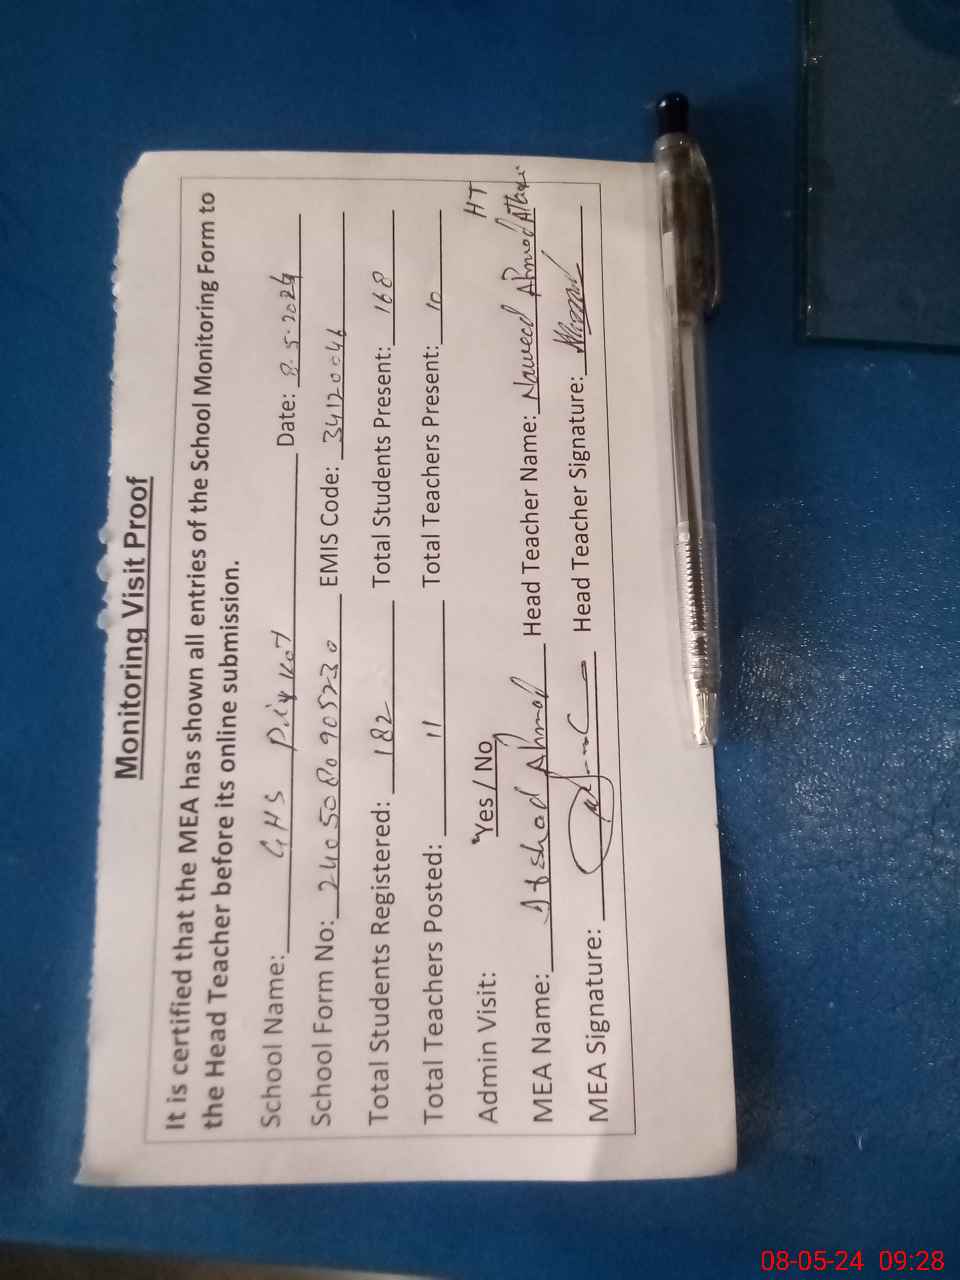 Monitoring Visit Proof
It is certified that the MEA has shown all entries of the School Monitoring Form to
the Head Teacher before its online submission.
School Name: GHS Date: 8-5-2024
School Form No: 240508090523 0 EMIS Code: 34120046
Total Students Registered: 182 Total Students Present: 168
Total Teachers Posted: 11 Total Teachers Present: 10
Admin Visit: Yes / No HT
MEA Name: Ahmad Head Teacher Name: Naweed Ahmad
MEA Signature: Head Teacher Signature:
08-05-24 09:28